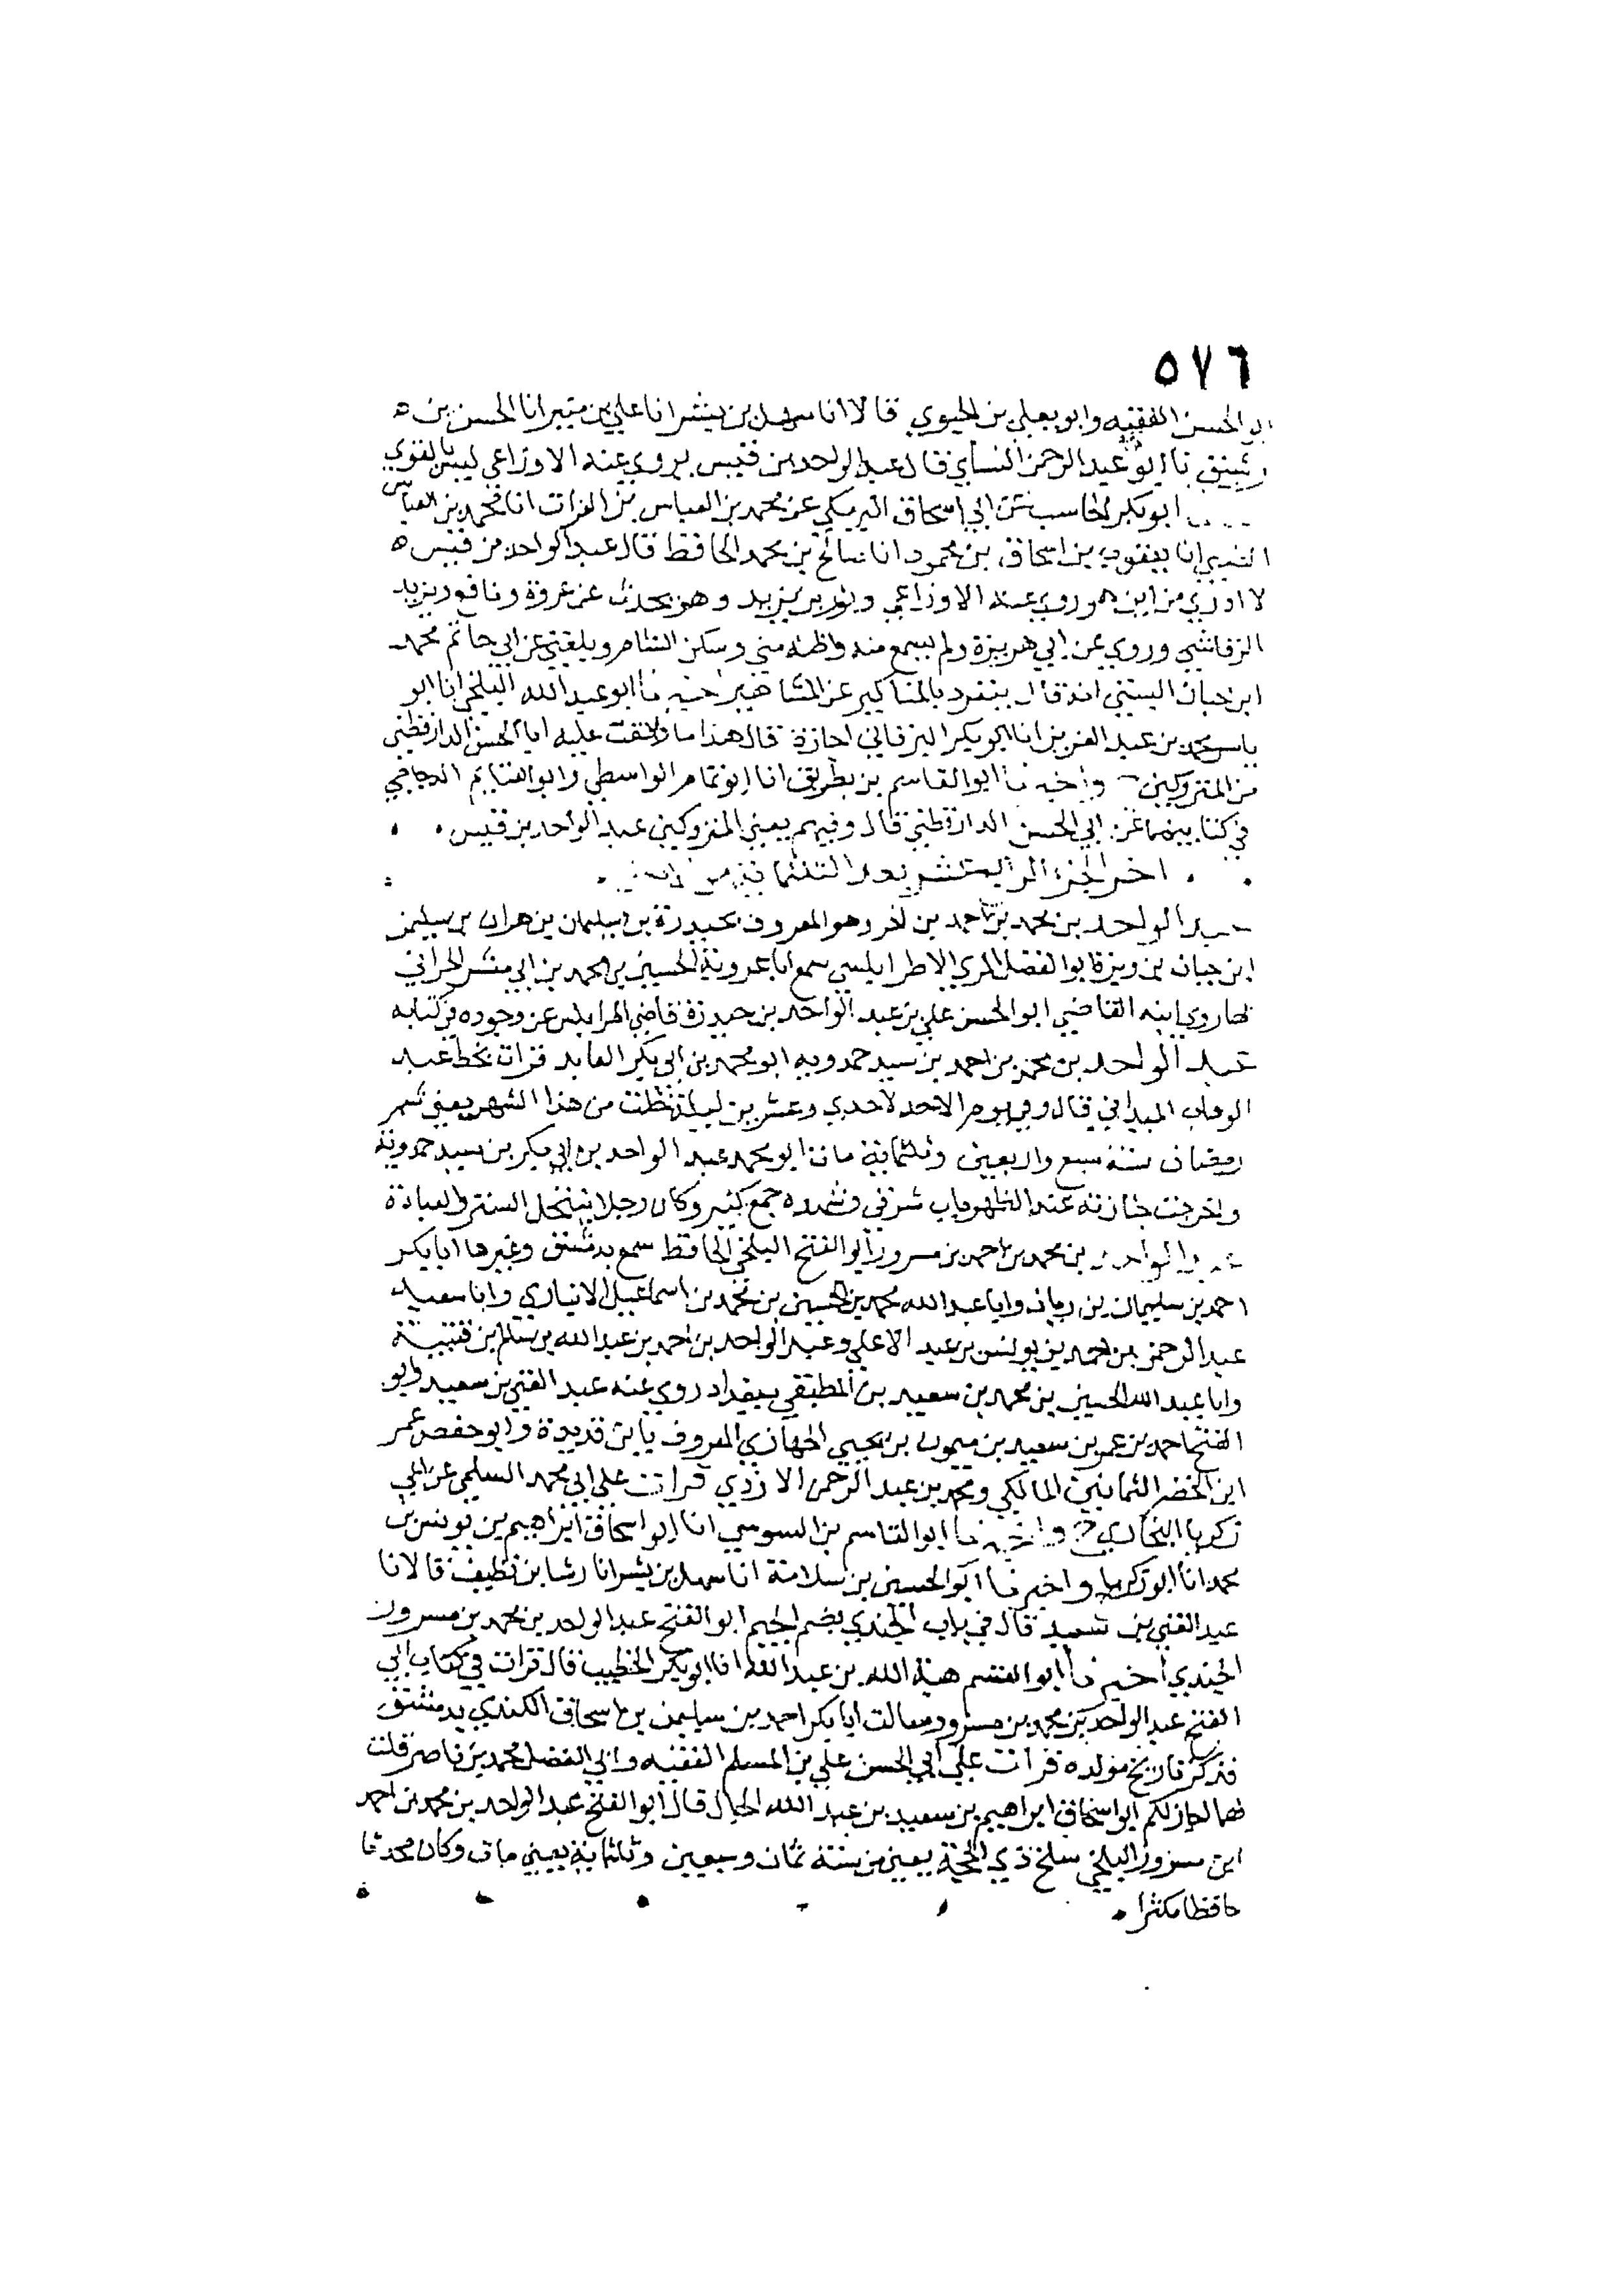 ٥٧٦
الحسن الفقيه وابو يعلي بن الحبوبي قالا انا سهل بن بشر انا علي بن منير انا الحسن بن
رشيق نا ابو عبد الرحمن النساي قال عبد الواحد بن قيس يروي عنه الاوزاعي ليس بالقوي
ابو بكر محاسب عن ابي اسحاق البرمكي عن محمد بن العباس بن الفرات انا محمد بن العباس
الضبي انا يعقوب بن اسحاق بن محمود انا صالح بن محمد الحافظ قال عبد الواحد بن قيس
لا ادري من اين هو روي عنه الاوزاعي وثور بن يزيد وهو يحدث عن عروة ونافع ويزيد
الرقاشي وروي عن ابي هريرة ولم يسمع منه واظنه مني وسكن الشام وبلغني عن ابي حاتم محمد
ابن حبان البستي انه قال يتفرد بالمناكير عن المشاهير اخبرنا ابو عبد الله البلخي انا ابو
ياسر محمد بن عبد العزيز انا ابو بكر البرقاني اجازة قال هذا ما وافقت عليه ابا الحسن الدارقطني
من المتروكين واخبرنا ابو القاسم بن بطريق انا ابو تمام الواسطي وابو الغنايم الدجاجي
في كتابيهما عن ابي الحسن الدارقطني قال وفيهم يعني المتروكين عبد الواحد بن قيس
اخر الجزء الرابع عشر بعد الثلثماية من
عبد الواحد بن محمد بن احمد بن لحر وهو المعروف بحيدرة بن سليمان بن هران بن سليمن
ابن حبان بن وبزة ابو الفضل المري الاطرابلسي سمع ابا عروبة الحسين بن محمد بن ابي معشر الحراني
روي ابنه القاضي ابو الحسن علي بن عبد الواحد بن حيدرة قاضي اطرابلس عن وجوده في كتابه
عبد الواحد بن محمد بن احمد بن سيد حمدويه ابو محمد بن ابي بكر العابد قرات بخط عبد
الوهاب الميداني قال وفي يوم الاحد لاحدي وعشرين ليلة خلت من هذا الشهر يعني شهر
رمضان سنة سبع واربعين وثلثماية مات ابو محمد عبد الواحد بن ابي بكر بن سيد حمدويه
واخرجت جنازته عند الظهر باب شرقي وشهده جمع كثير وكان رجلا ينتحل الستر والعبادة
عبد الواحد بن محمد بن احمد بن مسرور ابو الفتح البلخي الحافظ سمع بدمشق وغيرها ابا بكر
احمد بن سليمان بن ربان وابا عبد الله محمد بن الحسين بن محمد بن اسماعيل الانباري وابا سعيد
عبد الرحمن بن احمد بن يونس بن عبد الاعلي وعبد الواحد بن احمد بن عبد الله بن مسلم بن قتيبة
وابا عبد الله الحسين بن محمد بن سعيد بن المطبقي ببغداد روي عنه عبد الغني بن سعيد وابو
الفتح احمد بن عمر بن سعيد بن ميمون بن يحيي الجهازي المعروف بابن قديدة وابو حفص عمر
ابن الخضر الثمانيني المالكي ومحمد بن عبد الرحمن الازدي قرات علي ابي محمد السلمي عن ابي
زكريا البخاري ح واخبرنا ابو القاسم بن السوسي انا ابو اسحاق ابراهيم بن يونس بن
محمد انا ابو زكريا واخبرنا ابو الحسين بن سلامة انا سهل بن بشر انا رشا بن نظيف قالا نا
عبد الغني بن سعيد قال في باب الجندي بضم الجيم ابو الفتح عبد الواحد بن محمد بن مسرور
الجندي اخبرنا ابو القسم هبة الله بن عبد الله انا ابو بكر الخطيب قال قرات في كتاب ابي
الفتح عبد الواحد بن محمد بن مسرور سالت ابا بكر احمد بن سليمن بن اسحاق الكندي بدمشق
فذكر تاريخ مولده قرات علي ابي الحسن علي بن المسلم الفقيه وابي الفضل محمد بن ناصر قلت
لهما اجاز لكم ابو اسحاق ابراهيم بن سعيد بن عبد الله الحبال قال ابو الفتح عبد الواحد بن محمد بن احمد
ابن مسرور البلخي سلخ ذي الحجة يعني من سنة ثمان وسبعين وثلثماية يعني مات وكان محدثا
حافظا مكثرا